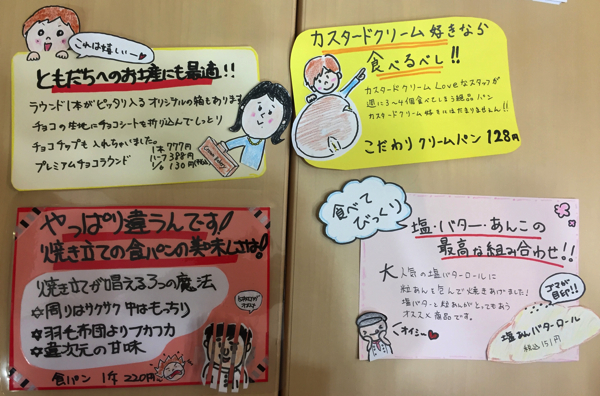 これは嬉しい〜
ともだちへのお土産にも最適!!
ラウンド1本がピッタリ入るオリジナルの箱もあります
チョコの生地にチョコシートも折り込んでしっとり
チョコチップも入れちゃいました。
プレミアムチョコラウンド
1本 777円
ハーフ 388円
1/6 130円(税込)
カスタードクリーム好きなら
食べるべし!!
カスタードクリームLoveなスタッフが
週に3〜4個食べてしまう絶品パン
カスタードクリーム好きにはたまりませんん!!
こだわりクリームパン 128円
やっぱり違うんです!
焼き立ての食パンの美味しさは!
焼き立てが唱える3つの魔法
☆周りはサクサク 中はもっちり
☆羽毛布団よりフカフカ
☆異次元の甘味
食パン 1斤 220円
食べて
びっくり
塩・バター・あんこの
最高な組み合わせ!!
大人気の塩バターロールに
粒あんを包んで焼きあげました!
塩バターと粒あんがとってもあう
オススメ商品です。
オイシー
ゴマが
目印!!
塩あんバターロール
税込151円